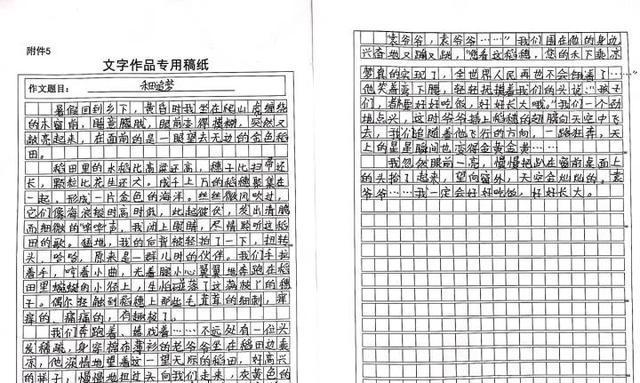 附件5
文字作品专用稿纸
作文题目：禾田追梦
暑假回到乡下，黄昏时我坐在爬山虎缠绕
的木窗前，睡意朦胧，眼前变得模糊，突然又
敞亮起来，在面前的是一眼望去无边的金色稻
田。
稻田里的水稻比高粱还高，穗子比扫帚还
长，颗粒比花生还大。成千上万的稻穗聚集在
一起，形成一片金色的海洋。丝丝微风吹过，
它们像海浪般时高时低，此起彼伏，发出清脆
而细微的哗哗声，我闭上眼睛，尽情聆听这稻
田的歌。猛地，我的后背被轻拍了一下，扭转
头，哈哈，原来是一群儿时的伙伴。我们手拉
着手，哼着小曲，光着脚小心翼翼地奔跑在稻
田里蜿蜒的小径上，生怕碰落了这满枝的穗
子。偶尔轻触到稻穗上那些毛茸茸的细刺，痒
痒的、痛痛的，有趣极了。
我们奔跑着、嬉戏着……不远处有一位头
发稀疏，身穿棉布薄衫的老爷爷坐在稻田边乘
凉，他深情地望着这一望无际的稻田，好高兴
的样子，慢慢地扭过头向我们走来，灰黄色的
袁爷爷，袁爷爷……”我们围在他的身边
兴奋地又蹦又跳，“您看这稻穗，您的禾下乘凉
梦真的实现了，全世界人民再也不会饿着了……”
他笑着弯下腰，轻轻抚摸着我们的头说：“孩子
们，都要好好吃饭，好好长大哦。”我们一个劲
地点头，这时爷爷插上稻穗的翅膀向天空中飞
去，我们追随着他飞行的方向，一路狂奔，天
上的星星瞬间也变得金黄金黄……
我忽然眼前一亮，慢慢把趴在窗前桌面上
的头抬了起来，望向窗外，天空会灿灿的。袁
爷爷……我一定会好好吃饭，好好长大。